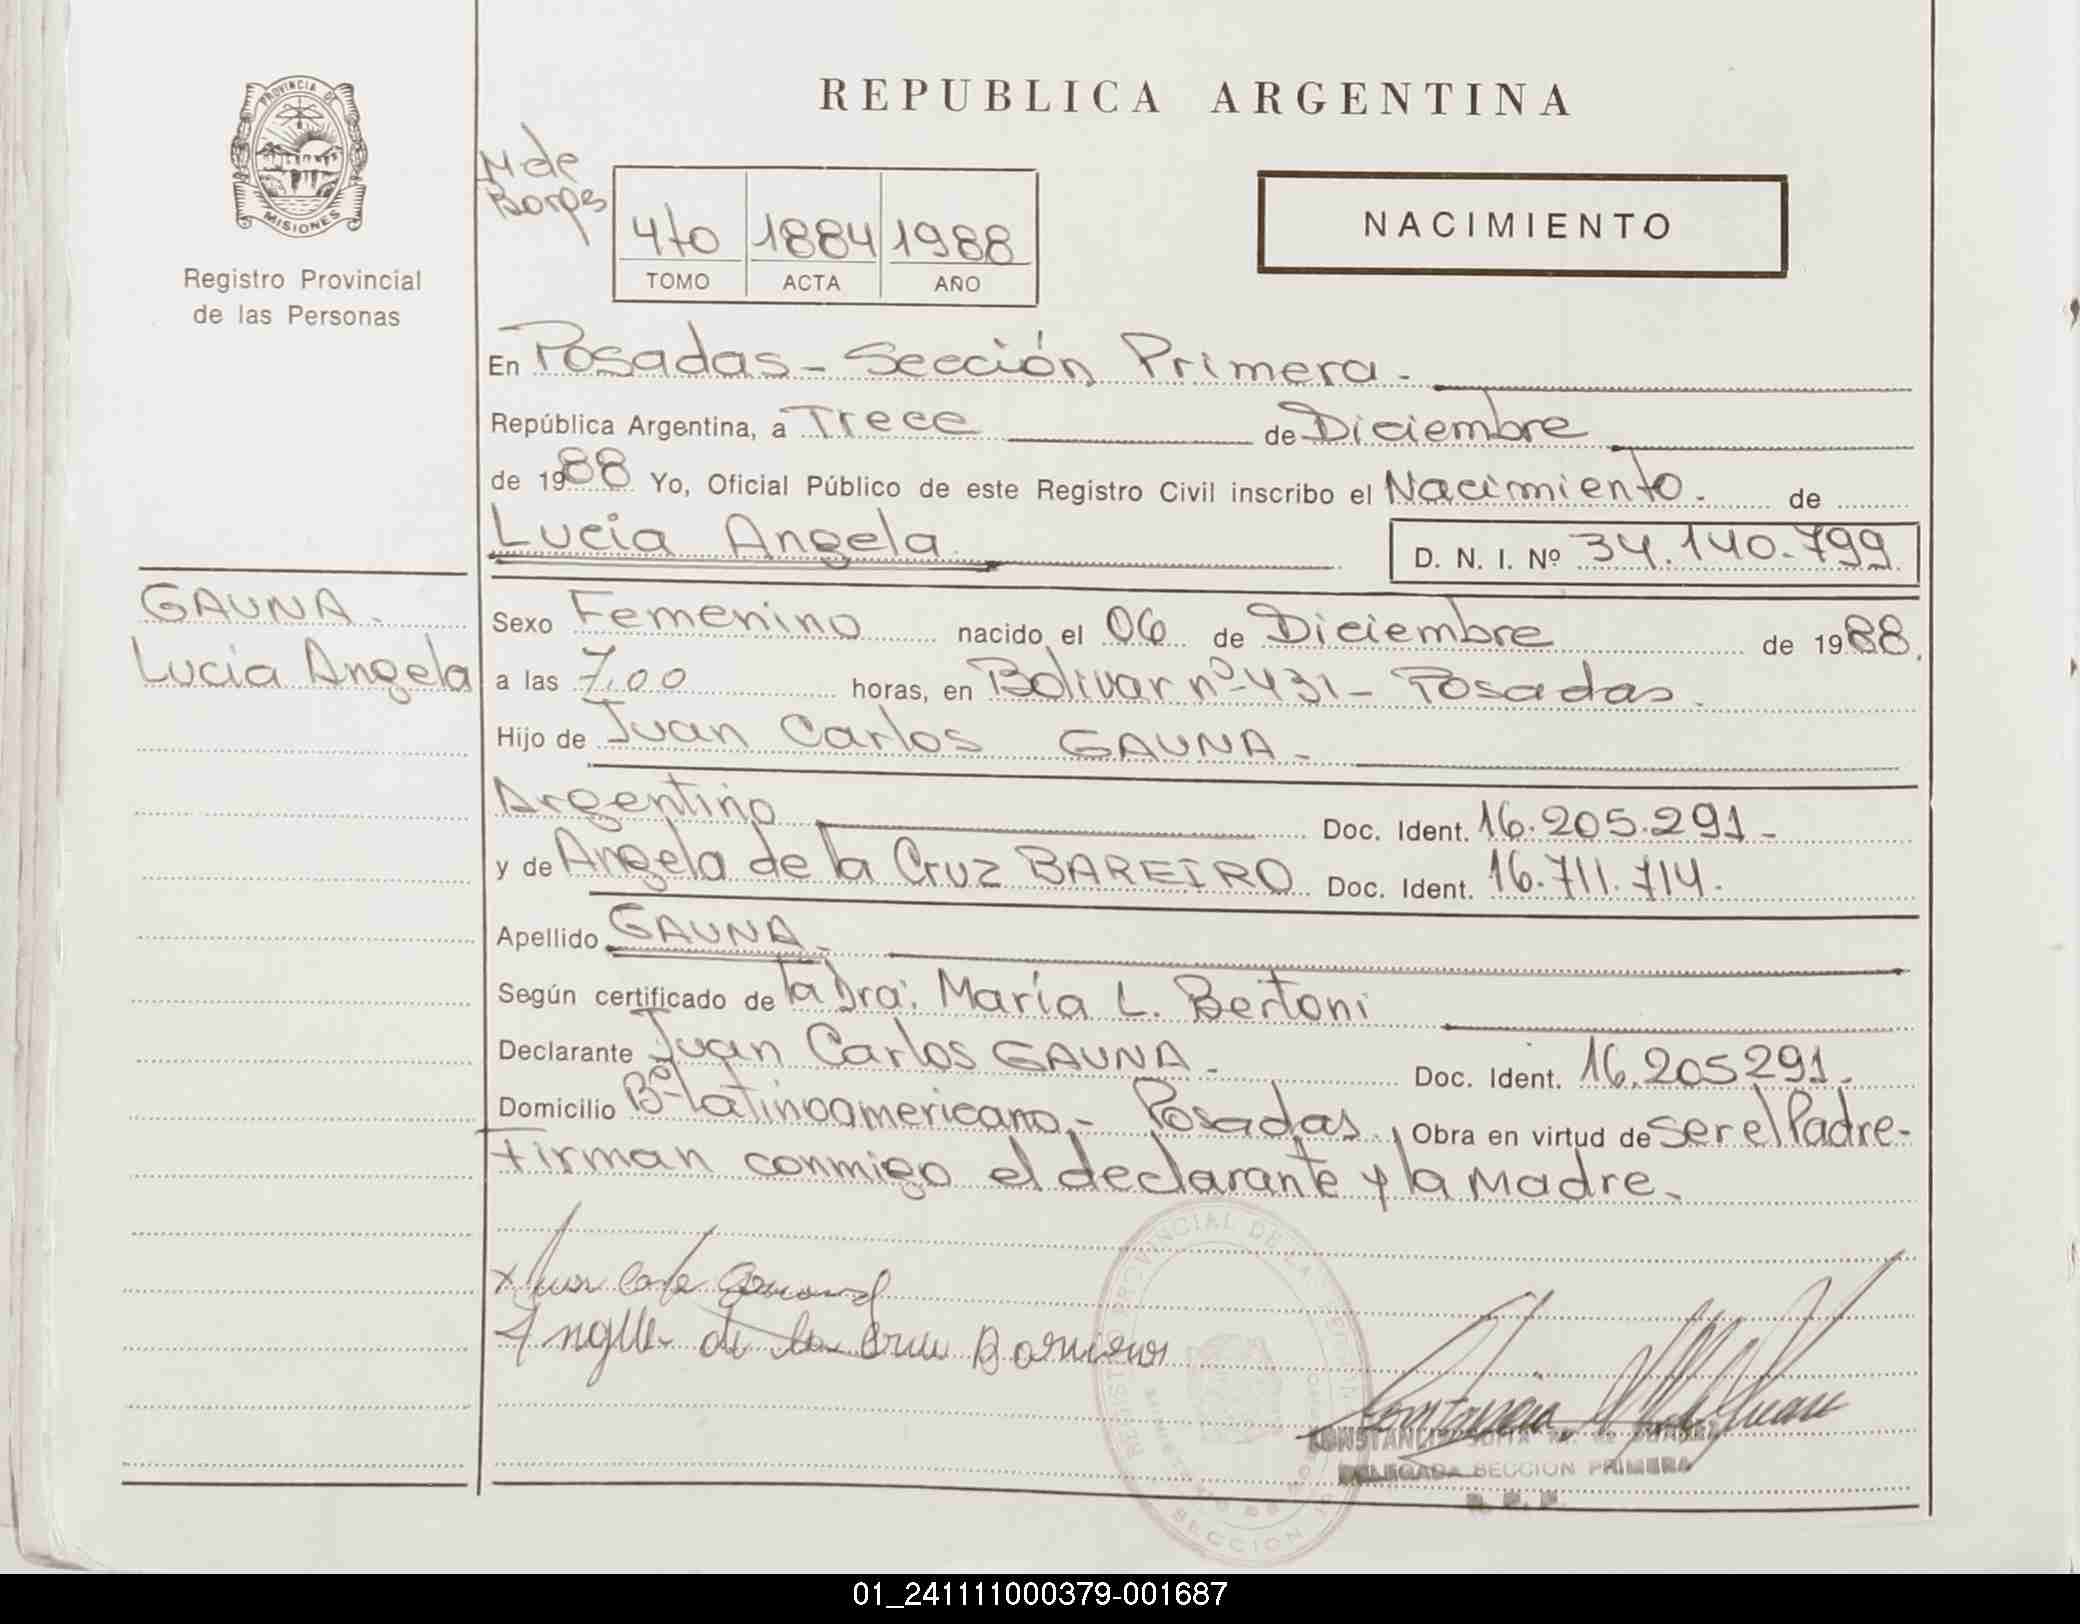 REPUBLICA ARGENTINA
PROVINCIA DE
MISIONES
Registro Provincial
de las Personas
M de
Borges
4to 1884 1988
TOMO ACTA AÑO
NACIMIENTO
En Posadas - Sección Primera -
República Argentina, a Trece de Diciembre
de 1988 Yo, Oficial Público de este Registro Civil inscribo el Nacimiento - de
Lucia Angela
D. N. I. Nº 34.140.799
GAUNA.
Lucia Angela
Sexo Femenino nacido el 06 de Diciembre de 1988.
a las 7,00 horas, en Bolivar nº 431 - Posadas.
Hijo de Juan Carlos GAUNA -
Argentino Doc. Ident. 16.205.291-
y de Angela de la Cruz BAREIRO Doc. Ident. 16.711.714.
Apellido GAUNA -
Según certificado de la Dra: María L. Bertoni
Declarante Juan Carlos GAUNA - Doc. Ident. 16.205291.
Domicilio Bº Latinoamericano - Posadas. Obra en virtud de ser el Padre-
Firman conmigo el declarante y la Madre.
DELEGADA SECCION PRIMERA
R. P. P.
01_241111000379-001687